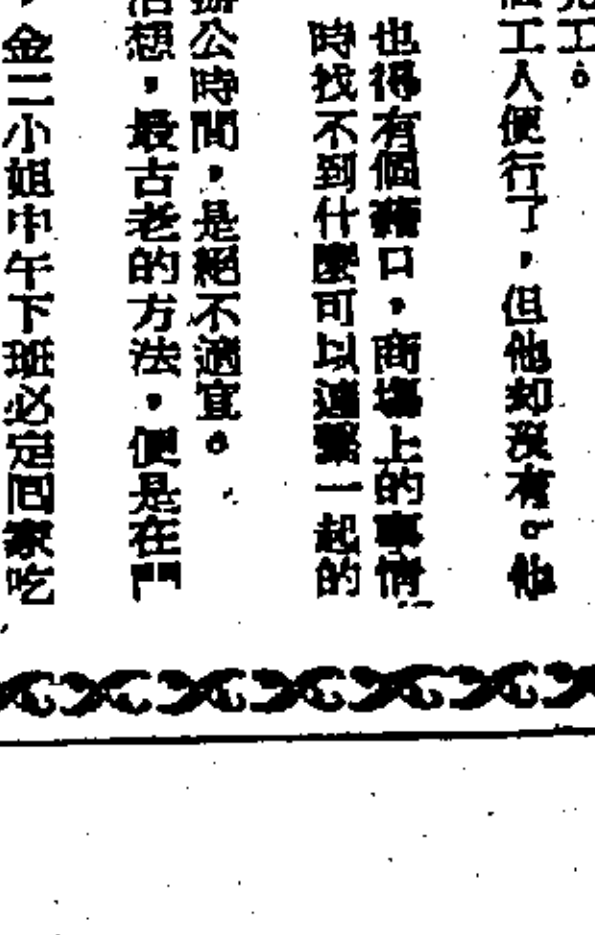 工。
工人便行了，但他却沒有。他
也得有個藉口，商場上的事情
時找不到什麼可以連繫一起的
公時間，是絕不適宜。
想，最古老的方法，便是在門
，金二小姐中午下班必定回家吃